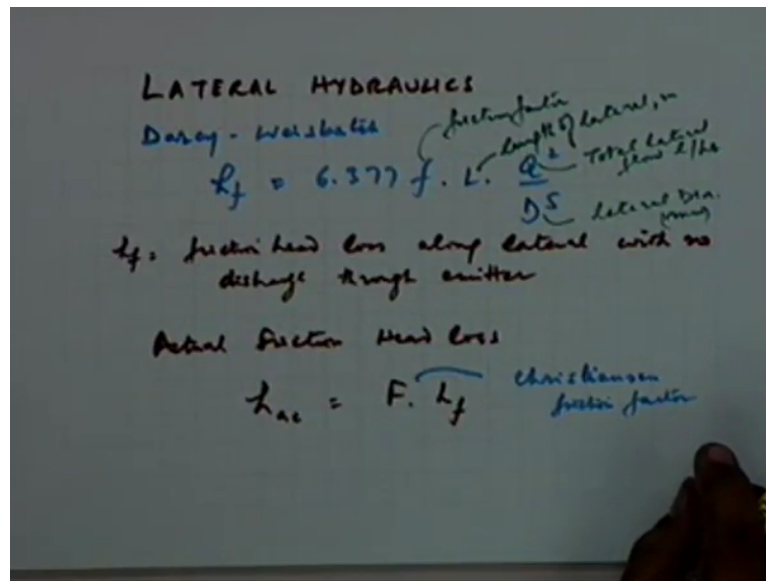 LATERAL HYDRAULICS
Darcy-Weisbach
friction factor
length of lateral, m
hf = 6.377 f. L. Q²/D⁵
Total lateral flow l/hr
lateral Dia. (mm)
hf = friction head loss along lateral with no
discharge through emitter
Actual Friction Head Loss
hac = F. hf
Christiansen
friction factor